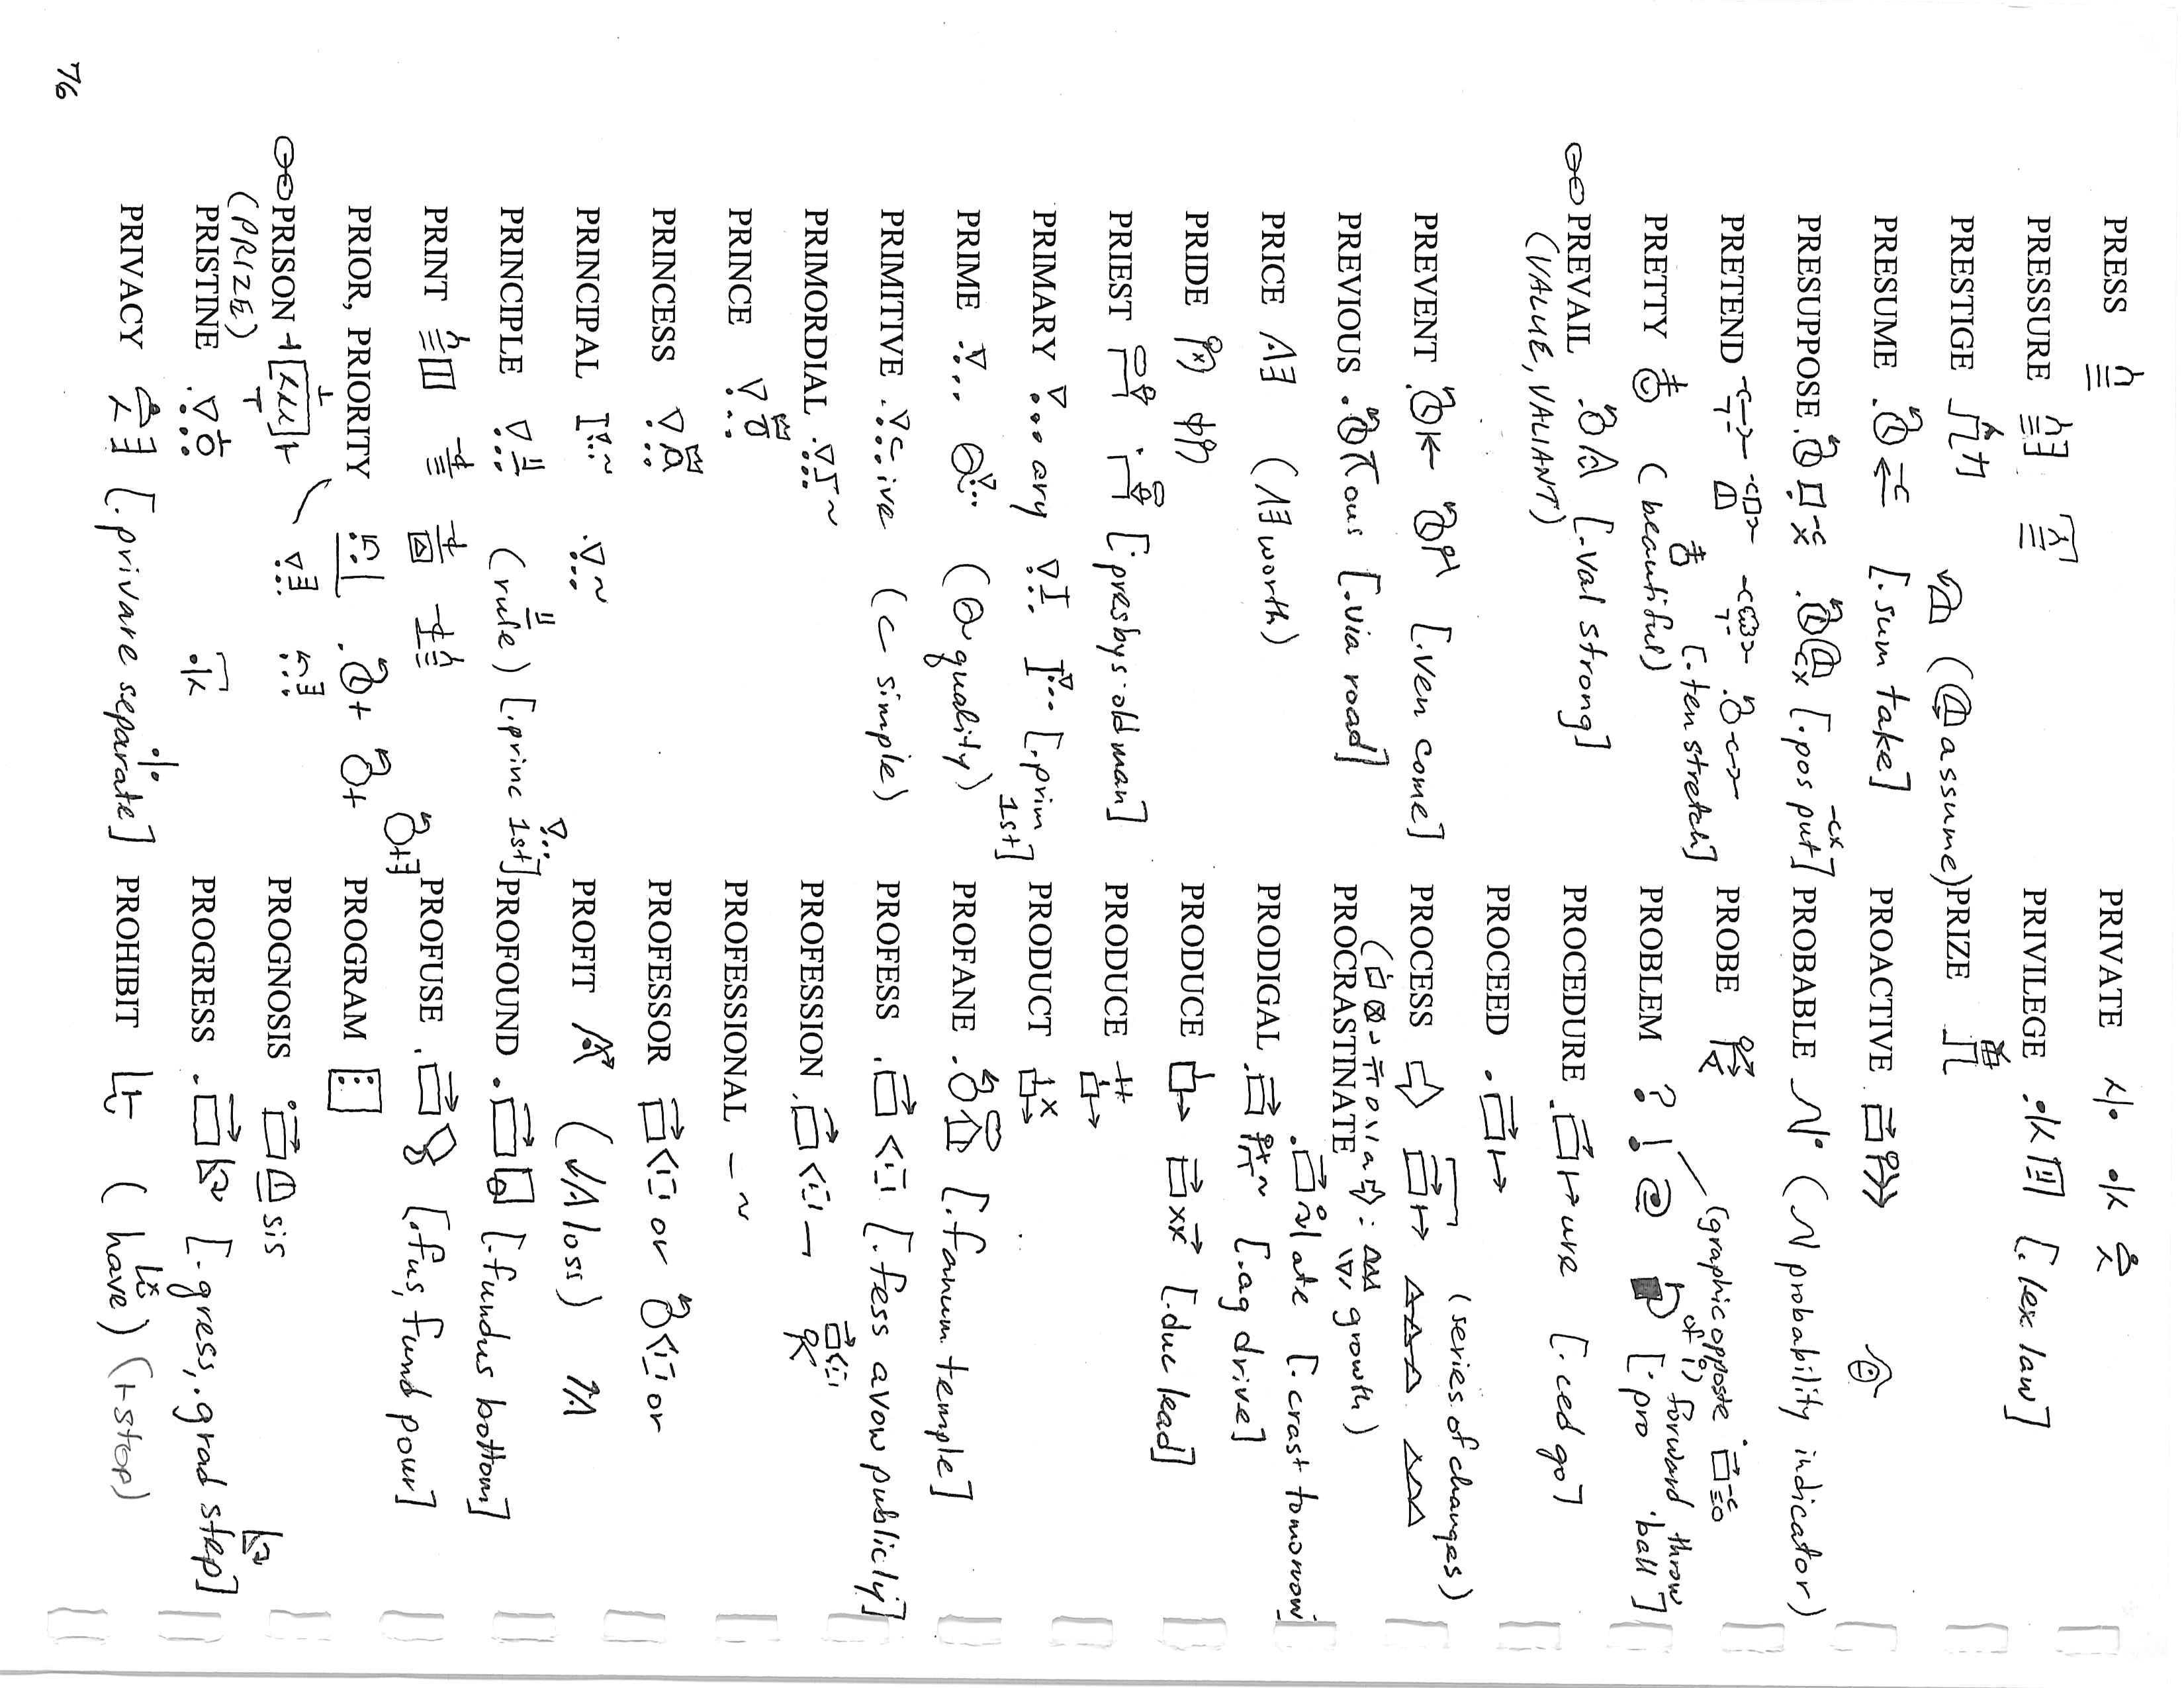 PRESS
PRESSURE
PRESTIGE
(assume)
PRESUME [.sum take]
PRESUPPOSE [.pos put]
PRETEND [.ten stretch]
PRETTY (beautiful)
PREVAIL [.val strong]
(VALUE, VALIANT)
PREVENT [.ven come]
PREVIOUS ous [.via road]
PRICE (worth)
PRIDE
PRIEST [presbys old man]
PRIMARY ary [.prim 1st]
PRIME (quality)
PRIMITIVE ive (c simple)
PRIMORDIAL
PRINCE
PRINCESS
PRINCIPAL
PRINCIPLE (rule) [.princ 1st]
PRINT
PRIOR, PRIORITY
PRISON
(PRIZE)
PRISTINE
PRIVACY [.privare separate]
PRIVATE
PRIVILEGE [.lex law]
PRIZE
PROACTIVE
PROBABLE (probability indicator)
PROBE
(graphic opposite of !)
PROBLEM ? ! @ [.pro forward .ball throw]
PROCEDURE ure [.ced go]
PROCEED
PROCESS (series of changes)
(growth)
PROCRASTINATE ate [.crast tomorrow]
PRODIGAL [.ag drive]
PRODUCE [.duc lead]
PRODUCE
PRODUCT
PROFANE [.fanum temple]
PROFESS [.fess avow publicly]
PROFESSION
PROFESSIONAL
PROFESSOR or or
PROFIT (loss)
PROFOUND [.fundus bottom]
PROFUSE [.fus, fund pour]
PROGRAM
PROGNOSIS sis
PROGRESS [.gress, .grad step]
PROHIBIT (have) (stop)
76